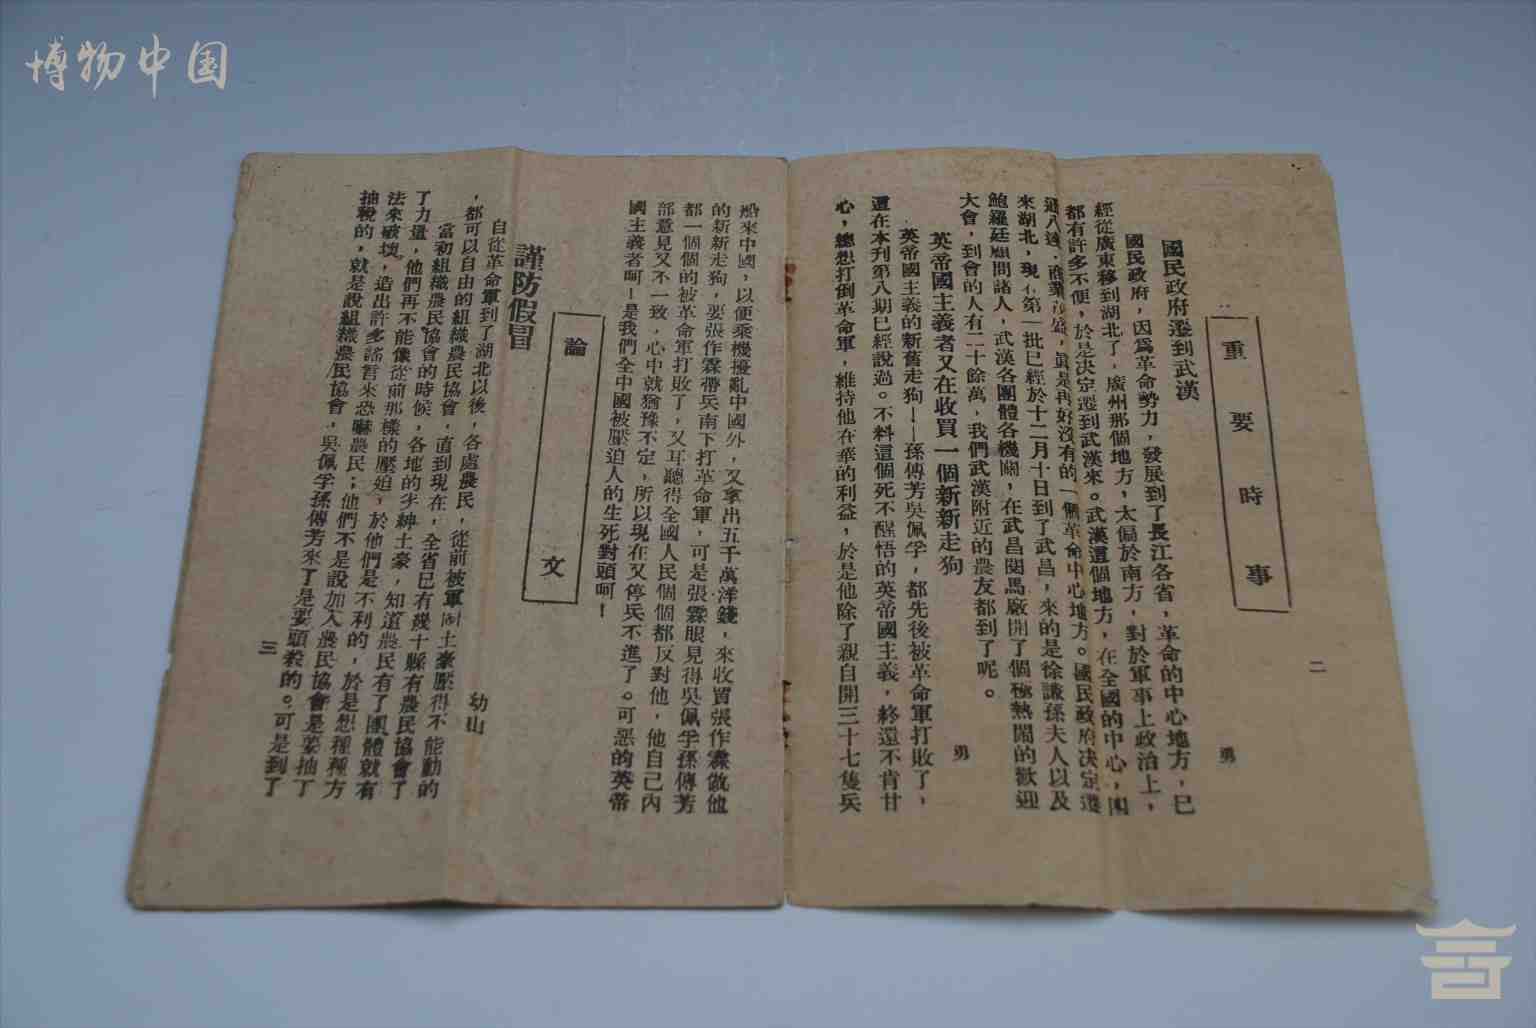 博物中国
二
重要時事
國民政府遷到武漢
勇
國民政府，因爲革命勢力，發展到了長江各省，革命的中心地方，已
經從廣東移到湖北了，廣州那個地方，太偏於南方，對於軍事上政治上，
都有許多不便，於是决定遷到武漢來。武漢這個地方，在全國的中心，四
通八達，商業茂盛，眞是再好沒有的一個革命中心地方。國民政府决定遷
來湖北，現在第一批已經於十二月十日到了武昌，來的是徐謙孫夫人以及
鮑羅廷顧問諸人，武漢各團體各機關，在武昌閱馬厰開了個極熱閙的歡迎
大會，到會的人有二十餘萬，我們武漢附近的農友都到了呢。
英帝國主義者又在收買一個新新走狗
勇
英帝國主義的新舊走狗——孫傳芳吳佩孚，都先後被革命軍打敗了，
還在本刊第八期已經說過。不料這個死不醒悟的英帝國主義，終還不肯甘
心，總想打倒革命軍，維持他在華的利益，於是他除了親自開三十七隻兵
船來中國，以便乘機擾亂中國外，又拿出五千萬洋錢，來收買張作霖做他
的新新走狗，要張作霖帶兵南下打革命軍，可是張霖眼見得吳佩孚孫傳芳
都一個個的被革命軍打敗了，又耳聽得全國人民個個都反對他，他自己内
部意見又不一致，心中就猶豫不定，所以現在又停兵不進了。可惡的英帝
國主義者呵！是我們全中國被壓迫人的生死對頭呵！
論文
謹防假冒
幼山
自從革命軍到了湖北以後，各處農民，從前被軍閥土豪壓得不能動的
，都可以自由的組織農民協會，直到現在，全省已有幾十縣有農民協會了
當初組織農民協會的時候，各地的劣紳土豪，知道農民有了團體就有
了力量，他們再不能像從前那樣的壓迫，於他們是不利的，於是想種種方
法來破壞，造出許多謠言來恐嚇農民；他們不是說加入農民協會是要抽丁
抽稅的，就是說組織農民協會，吳佩孚孫傳芳來了是要頭殺的。可是到了
三